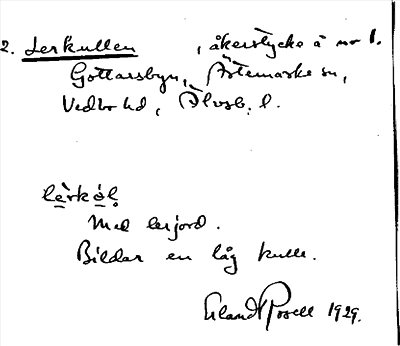 2. Lerkullen , åkerstycke å nr 1.
Gottarsbyn, Ärtemarks sn,
Vedbo hd, Älvsb. l.
lè̱rkø̱l̥
Med lerjord.
Bildar en låg kulle.
Erland Rosell 1929.